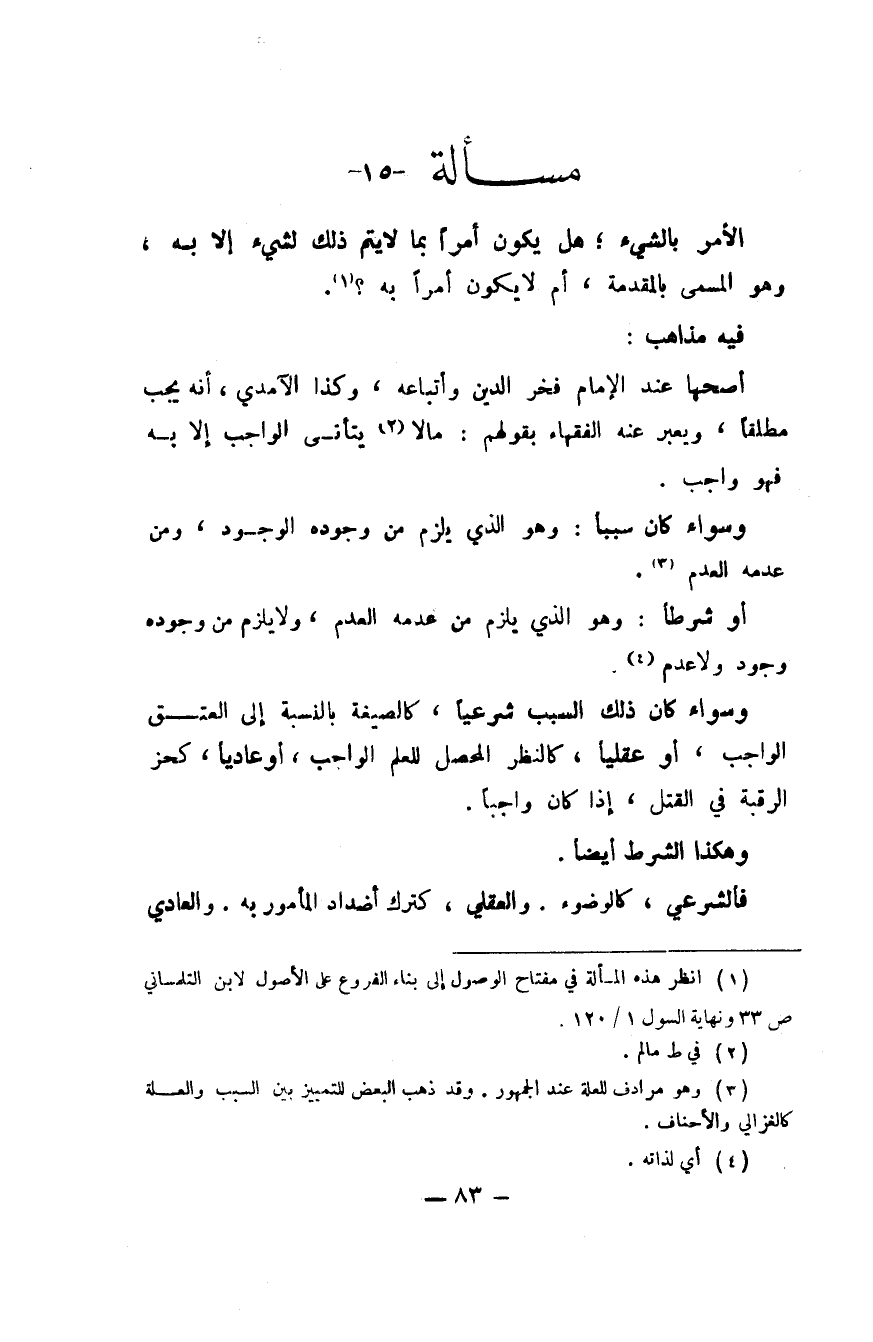 مسألة -١٥-
الأمر بالشيء ؛ هل يكون أمراً بما لايتم ذلك لشيء إلا بـه ،
وهو المسمى بالمقدمة ، أم لايكون أمراً به ؟(١).
فيه مذاهب :
أصحها عند الإمام فخر الدين وأتباعه ، وكذا الآمدي ، أنه يجب
مطلقاً ، ويعبر عنه الفقهاء بقولهم : مالا (٢) يتأتـى الواجب إلا بـه
فهو واجب .
وسواء كان سبباً : وهو الذي يلزم من وجوده الوجـود ، ومن
عدمه العدم (٣) .
أو شرطاً : وهو الذي يلزم من عدمه العدم ، ولايلزم من وجوده
وجود ولاعدم (٤) .
وسواء كان ذلك السبب شرعياً ، كالصيغة بالنسبة إلى العتـــق
الواجب ، أو عقلياً ، كالنظر المحصل للعلم الواجب ، أوعادياً ، كحز
الرقبة في القتل ، إذا كان واجباً .
وهكذا الشرط أيضاً .
فالشرعي ، كالوضوء . والعقلي ، كترك أضداد المأمور به . والعادي
(١) انظر هذه المـألة في مفتاح الوصول إلى بناء الفروع على الأصول لابن التلمساني
ص ٣٣ ونهاية السول ١ / ١٢٠ .
(٢) في ط مالم .
(٣) وهو مرادف للعلة عند الجمهور . وقد ذهب البعض للتمييز بين السبب والعـــلة
كالغزالي والأحناف .
(٤) أي لذاته .
— ٨٣ —